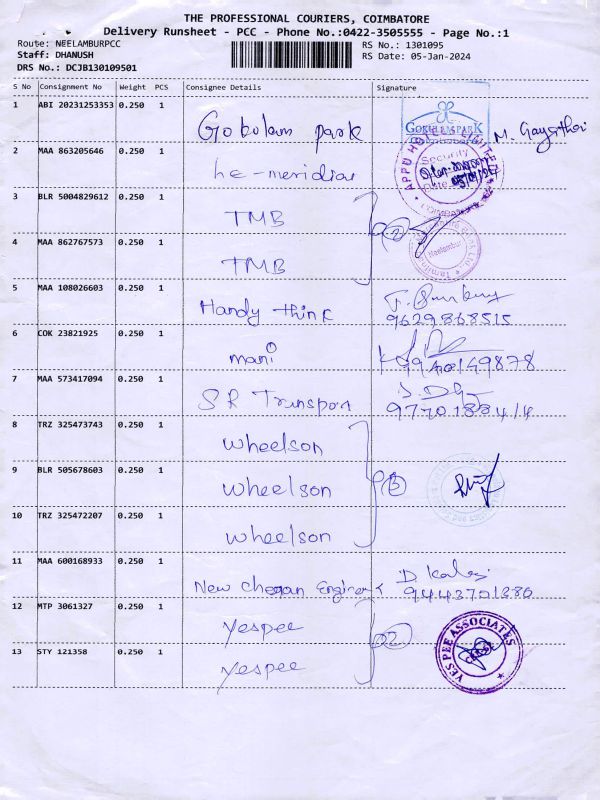 THE PROFESSIONAL COURIERS, COIMBATORE
Delivery Runsheet - PCC - Phone No.:0422-3505555 - Page No.:1
Route: NEELAMBURPCC RS No.: 1301095
Staff: DHANUSH RS Date: 05-Jan-2024
DRS No.: DCJB130109501
S No Consignment No Weight PCS Consignee Details Signature
1 ABI 20231253353 0.250 1 Gokulam park M. Gayathri
2 MAA 863205646 0.250 1 he-meridian
3 BLR 5004829612 0.250 1 TMB
4 MAA 862767573 0.250 1 TMB
2
5 MAA 108026603 0.250 1 Handy think
9629868515
6 COK 23821925 0.250 1 mani
9940149878
7 MAA 573417094 0.250 1 SR Transport
8 TRZ 325473743 0.250 1 wheelson
9 BLR 505678603 0.250 1 wheelson
3
10 TRZ 325472207 0.250 1 wheelson
11 MAA 600168933 0.250 1 New
9443701286
12 MTP 3061327 0.250 1 yespee
2
13 STY 121358 0.250 1 yespee
YES PEE ASSOCIATES